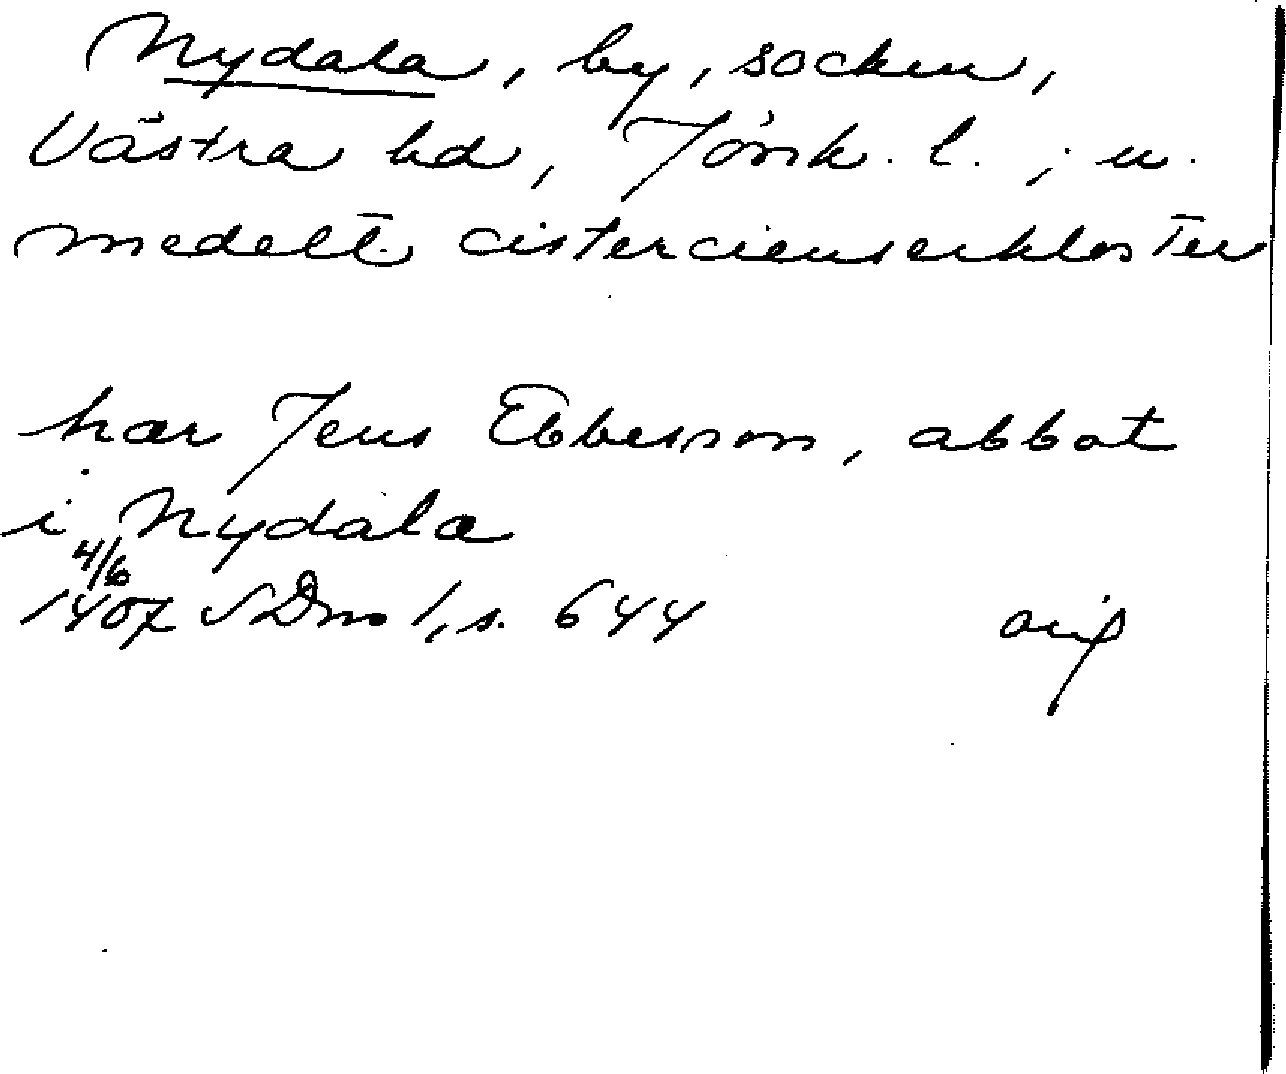 Nydala, by, socken,
Västra hd, Jönk. l. ; u.
medelt. cistercienserkloster
har Jens Ebbesson, abbot
i Nydala
4/6
1407 SDns 1, s. 644 orig